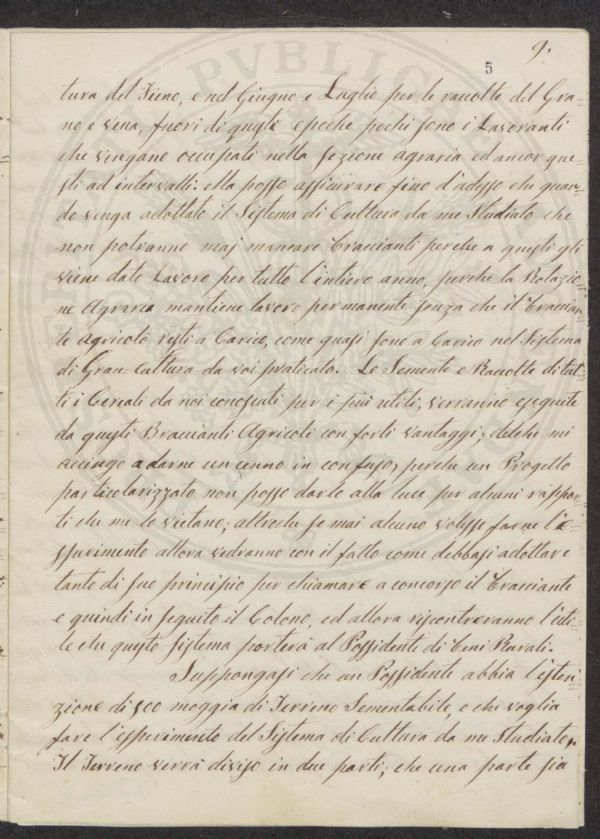 9.
5
tura del Fieno, e nel Giugno e Luglio per le raccolte del Gra=
no e vena, fuori di queste epoche pochi sono i Lavoranti
che vengano occupati nella sezione agraria ed ancor que=
sti ad intervalli: ella posso assicurare fino d'adesso che quan=
do venga adottato il Sistema di Cultura da me Studiato che
non potranno maj mancare Braccianti perche a questi gli
viene dato Lavoro per tutto l'intiero anno, perche la Rotazio=
ne Agraria mantiene lavoro permanente senza che il Braccian=
te Agricolo resti a Carico, come quasi sono a Carico nel Sistema
di Gran-Cultura da voi praticato. Le Semente e Raccolte di tut=
ti i Cereali da noi conosciuti per i piu utili, verranno eseguite
da questi Braccianti Agricoli con forti vantaggi; delche mi
accingo a darne un cenno in confuso, perche un Progetto
particolarizzato non posso darlo alla luce per alcuni rappor=
ti che me lo vietano; altroche se mai alcuno volesse farne l'e=
sperimento allora vedranno con il fatto come debbasi adottare
tanto di suo principio per chiamare a concorso il Bracciante
e quindi in seguito il Colono, ed allora riscontreranno l'uti=
le che questo sistema porterà al Possidente di Beni Rurali.
Suppongasi che un Possidente abbia l'esten=
zione di 500 moggia di Terreno Sementabile, e che voglia
fare l'esperimento del Sistema di Cultura da me Studiato,
Il Terreno verrà diviso in due parti; che una parte sia